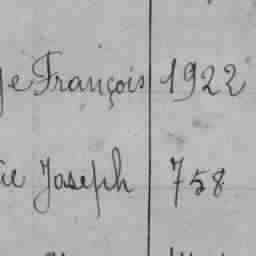 François 1922
Joseph 758